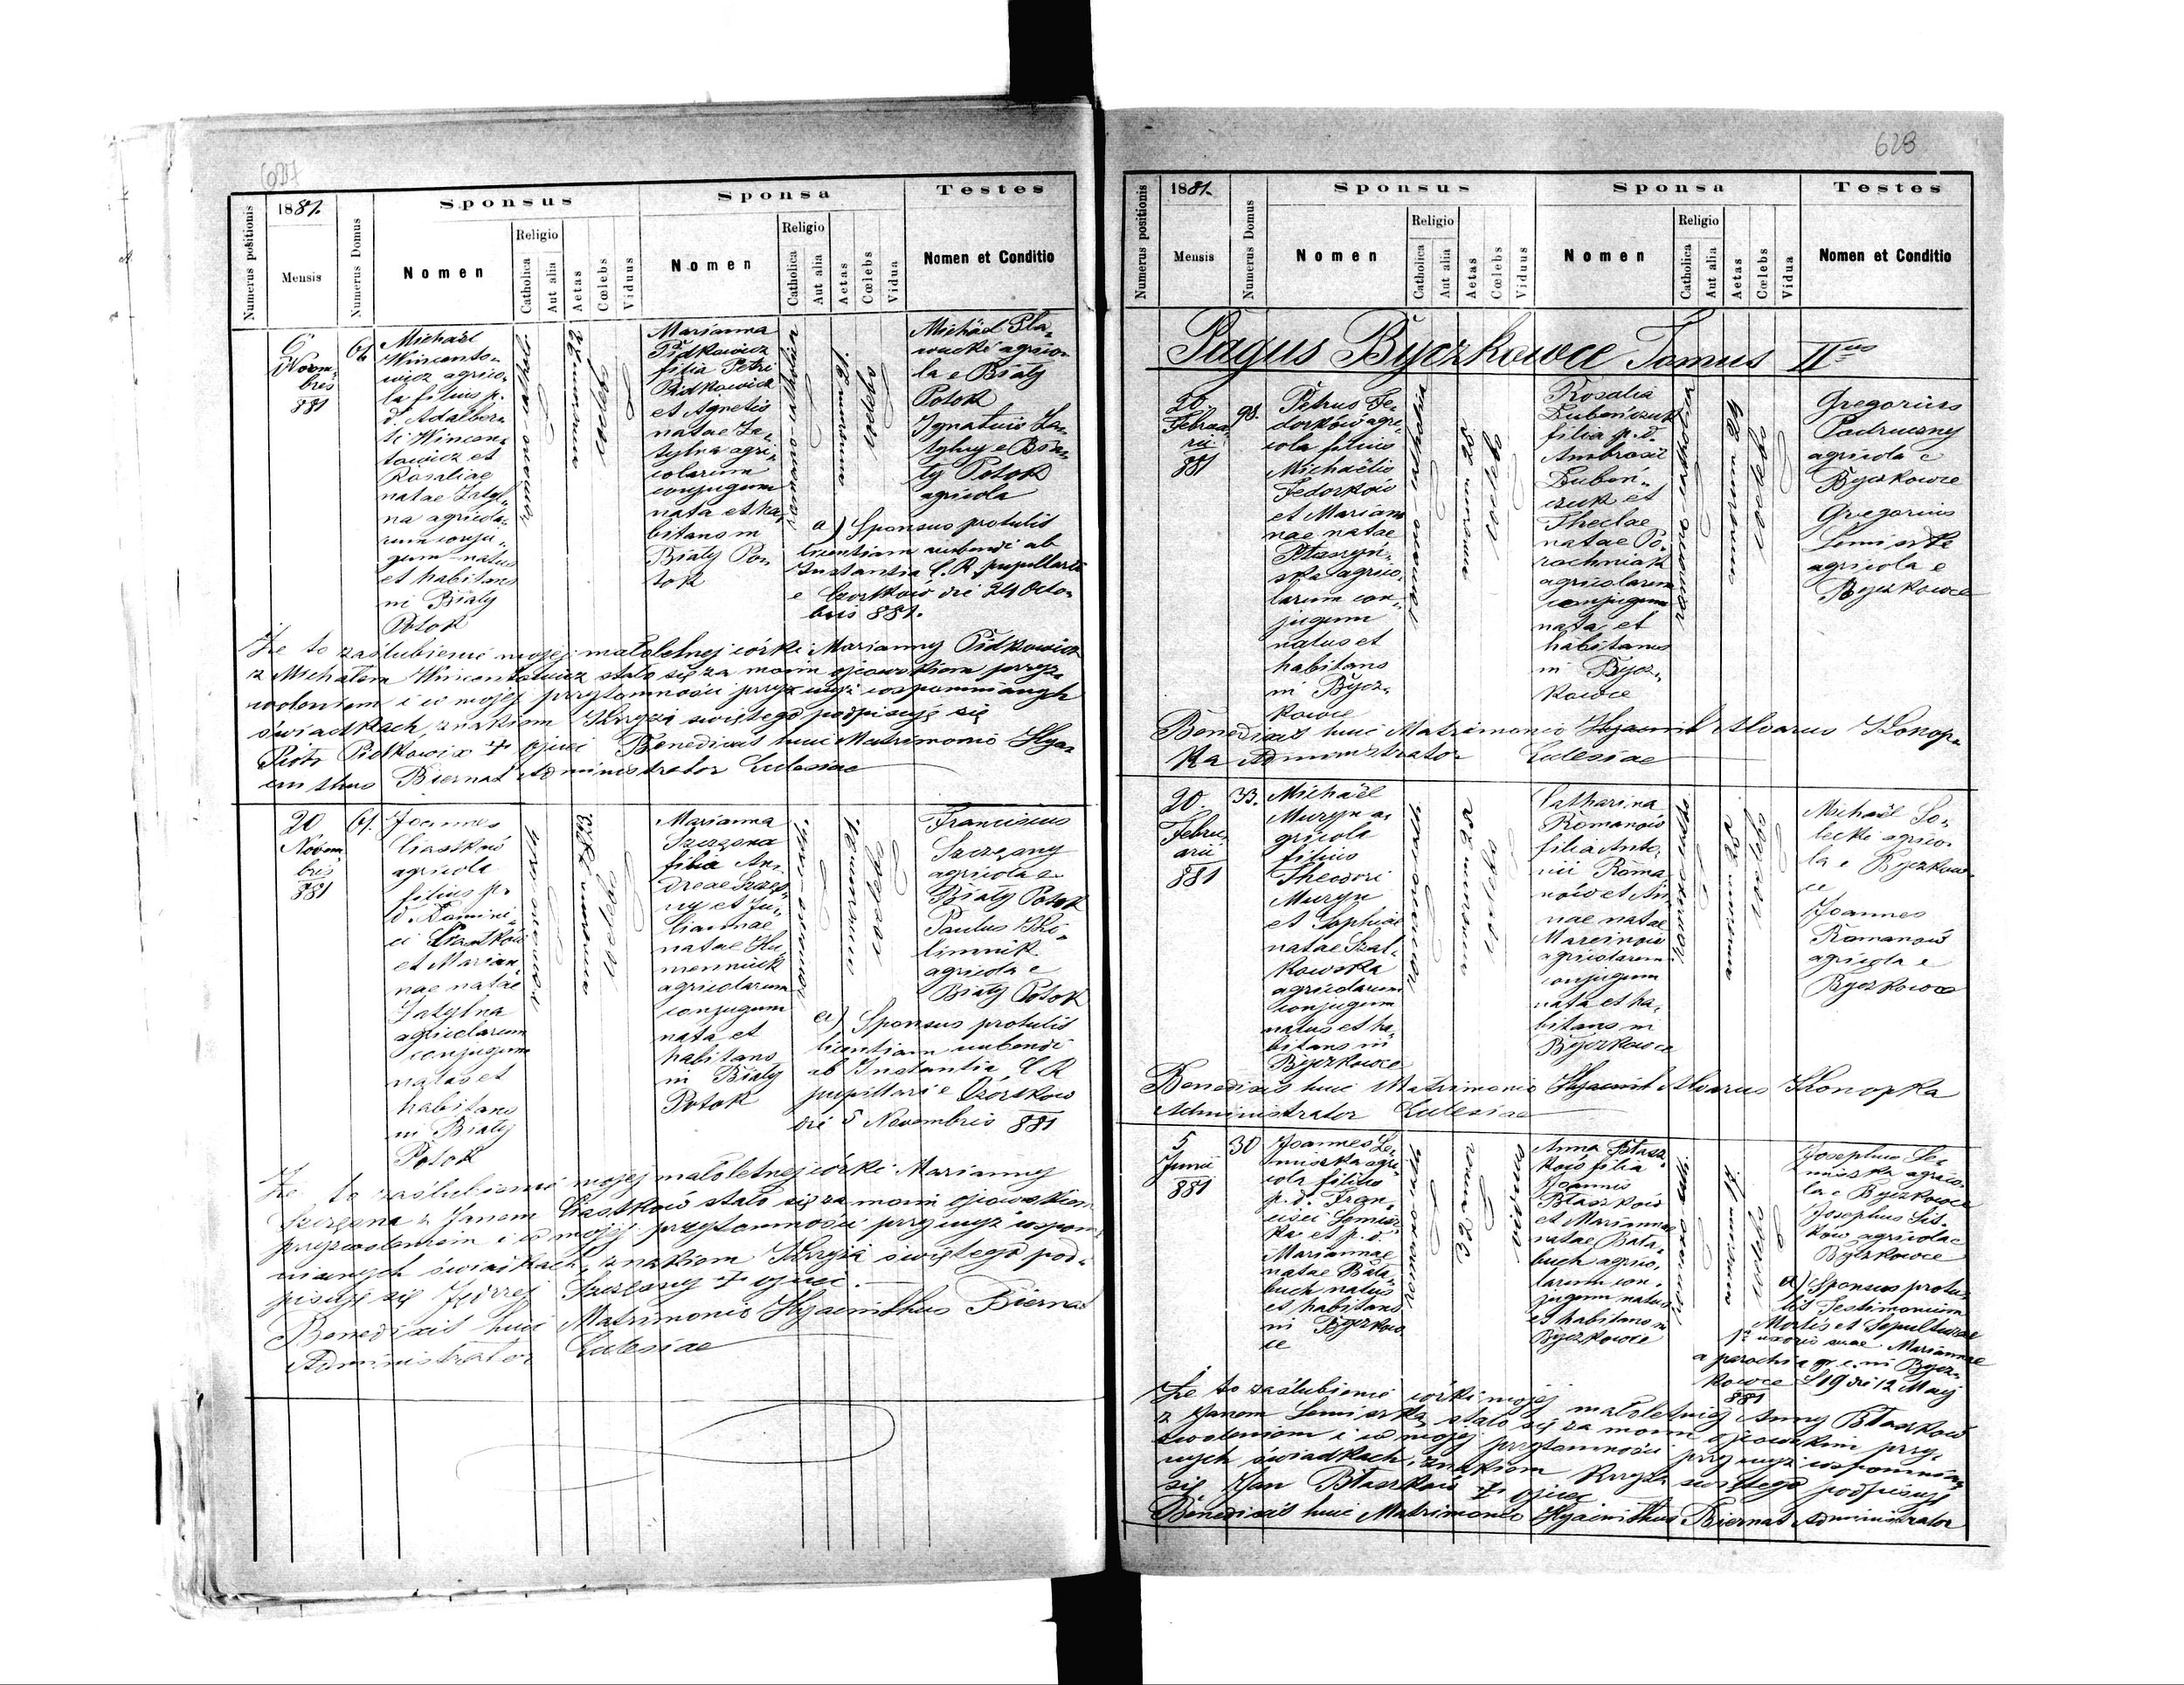 627
Numerus positionis
1881.
Mensis
Numerus Domus
Sponsus
Nomen
Religio
Catholica
Aut alia
Aetas
Cœlebs
Viduus
Sponsa
Nomen
Religio
Catholica
Aut alia
Aetas
Cœlebs
Vidua
Testes
Nomen et Conditio
6
Novem-
bris
881
Michaël
Wincento-
wicz agrico-
la filius p.
d. Adalber-
ti Wincen-
towicz et
Rosaliae
natae Zatyl-
na agricola-
rum conju-
gum natus
et habitans
in Biały
Potok
Marianna
Pidkowicz
filia Petri
Pidkowicz
et Agnetis
natae Za-
tylna agri-
colarum
conjugum
nata et ha-
bitans in
Biały Po-
tok
Michaël Sła-
wucki agrico-
la e Biały
Potok
Ignatius Za-
tylny e Bia-
ły Potok
agricola
a) Sponsus protulit
licentiam nubendi ab
Instantia C. R. pupillari
e Czortków die 24 Octo-
bris 881.
Że to zaślubienie mojej małoletnej córki Marianny Pidkowicz
z Michałem Wincentowicz stało się za moim ojcowskiem przyz-
woleniem i w mojej przytomności przy wyż wspomnianych
świadkach, znakiem Krzyża świętego podpisuję się
Piotr Pidkowicz + ojciec Benedixit huic Matrimonio Hya-
cinthus Biernat Administrator Ecclesiae
20
Novem
bris
881
61.
Joannes
Ciastków
agricola
filius p.
d. Domini-
ci Ciastków
et Marian-
nae natae
Zatylna
agricolarum
conjugum
natus et
habitans
in Biały
Potok
Marianna
Szczęsna
filia An-
dreae Szczęs-
ny et Ju-
liannae
natae Hu-
mennick
agricolarum
conjugum
nata et
habitans
in Biały
Potok
Franciscus
Szczęsny
agricola e
Biały Potok
Paulus
agricola e
Biały Potok
a) Sponsus protulit
licentiam nubendi
ab Instantia C. R
pupillari e Czortkow
die 5 Novembris 881
Że to zaślubienie mojej małoletnej córki Marianny
Szczęsna z Janem Ciastków stało się za moim ojcowskiem
przyzwoleniem i w mojej przytomności przy wyż wspom-
nianych świadkach, znakiem Krzyża świętego pod-
pisuję się Jędrzej Szczęsny + ojciec.
Benedixit huic Matrimonio Hyacinthus Biernat
Administrator Ecclesiae
628
Numerus positionis
1881.
Mensis
Numerus Domus
Sponsus
Nomen
Religio
Catholica
Aut alia
Aetas
Cœlebs
Viduus
Sponsa
Nomen
Religio
Catholica
Aut alia
Aetas
Cœlebs
Vidua
Testes
Nomen et Conditio
Pagus Byczkowce Tomus IIus
Februa-
rii
881
98.
Petrus Fe-
dorków agri-
cola filius
Michaëlis
Fedorków
et Marian
nae natae
Ptaszyń-
ska agrico-
larum con-
jugum
natus et
habitans
in Bycz-
kowce
Rosalia
Dubeńczuk
filia p.d.
Ambrosii
Dubeń-
czuk et
Theclae
natae Po-
rochniak
agricolarum
conjugum
nata et
habitans
in Bycz-
kowce
Gregorius
Padruczny
agricola e
Byczkowce
Gregorius
Lemiszka
agricola e
Byczkowce
Benedixit huic Matrimonio Hyacint Alvarus Konop-
ka Administrator Ecclesiae
20
Febru-
arii
881
33.
Michaël
Muryn a-
gricola
filius
Theodori
Muryn
et Sophiae
natae Szat-
kowska
agricolarum
conjugum
natus et ha-
bitans in
Byczkowce
Catharina
Romanów
filia Anto-
nii Roma-
nów et An-
nae natae
Marcinów
agricolarum
conjugum
nata et ha-
bitans in
Byczkowce
Michaël So-
lecki agrico-
la e Byczkow-
ce
Joannes
Romanów
agricola e
Byczkowce
Benedixit huic Matrimonio Hyacint Alvarus Konopka
Administrator Ecclesiae
5
Junii
881
30
Joannes Le-
miszka agri-
cola filius
p. d. Fran-
cisci Lemisz-
ka et p. d.
Mariannae
natae Bata-
buch natus
et habitans
in Byczkow-
ce
Anna Błasz-
ków filia
Joannis
Błaszków
et Mariannae
natae Bata-
buch agrico-
larum con-
jugum nata
et habitans in
Byczkowce
Josephus Le-
miszka agrico-
la e Byczkowce
Josephus Sit-
ków agricola e
Byczkowce
a) Sponsus protu-
lit Testimonium
Mortis et Sepulturae
1ae uxoris suae Mariannae
a parochia gr. c. in Bycz-
kowce S 19 die 12 Maij
881
Że to zaślubienie córki mojej małoletniej Anny Błaszków
z Janem Lemiszką stało się za moim ojcowskim przy-
zwoleniem i w mojej przytomności przy wyż wspomnia-
nych świadkach, znakiem Krzyża świętego podpisuję
się Jan Błaszków + ojciec
Benedixit huic Matrimonio Hyacinthus Biernat Administrator